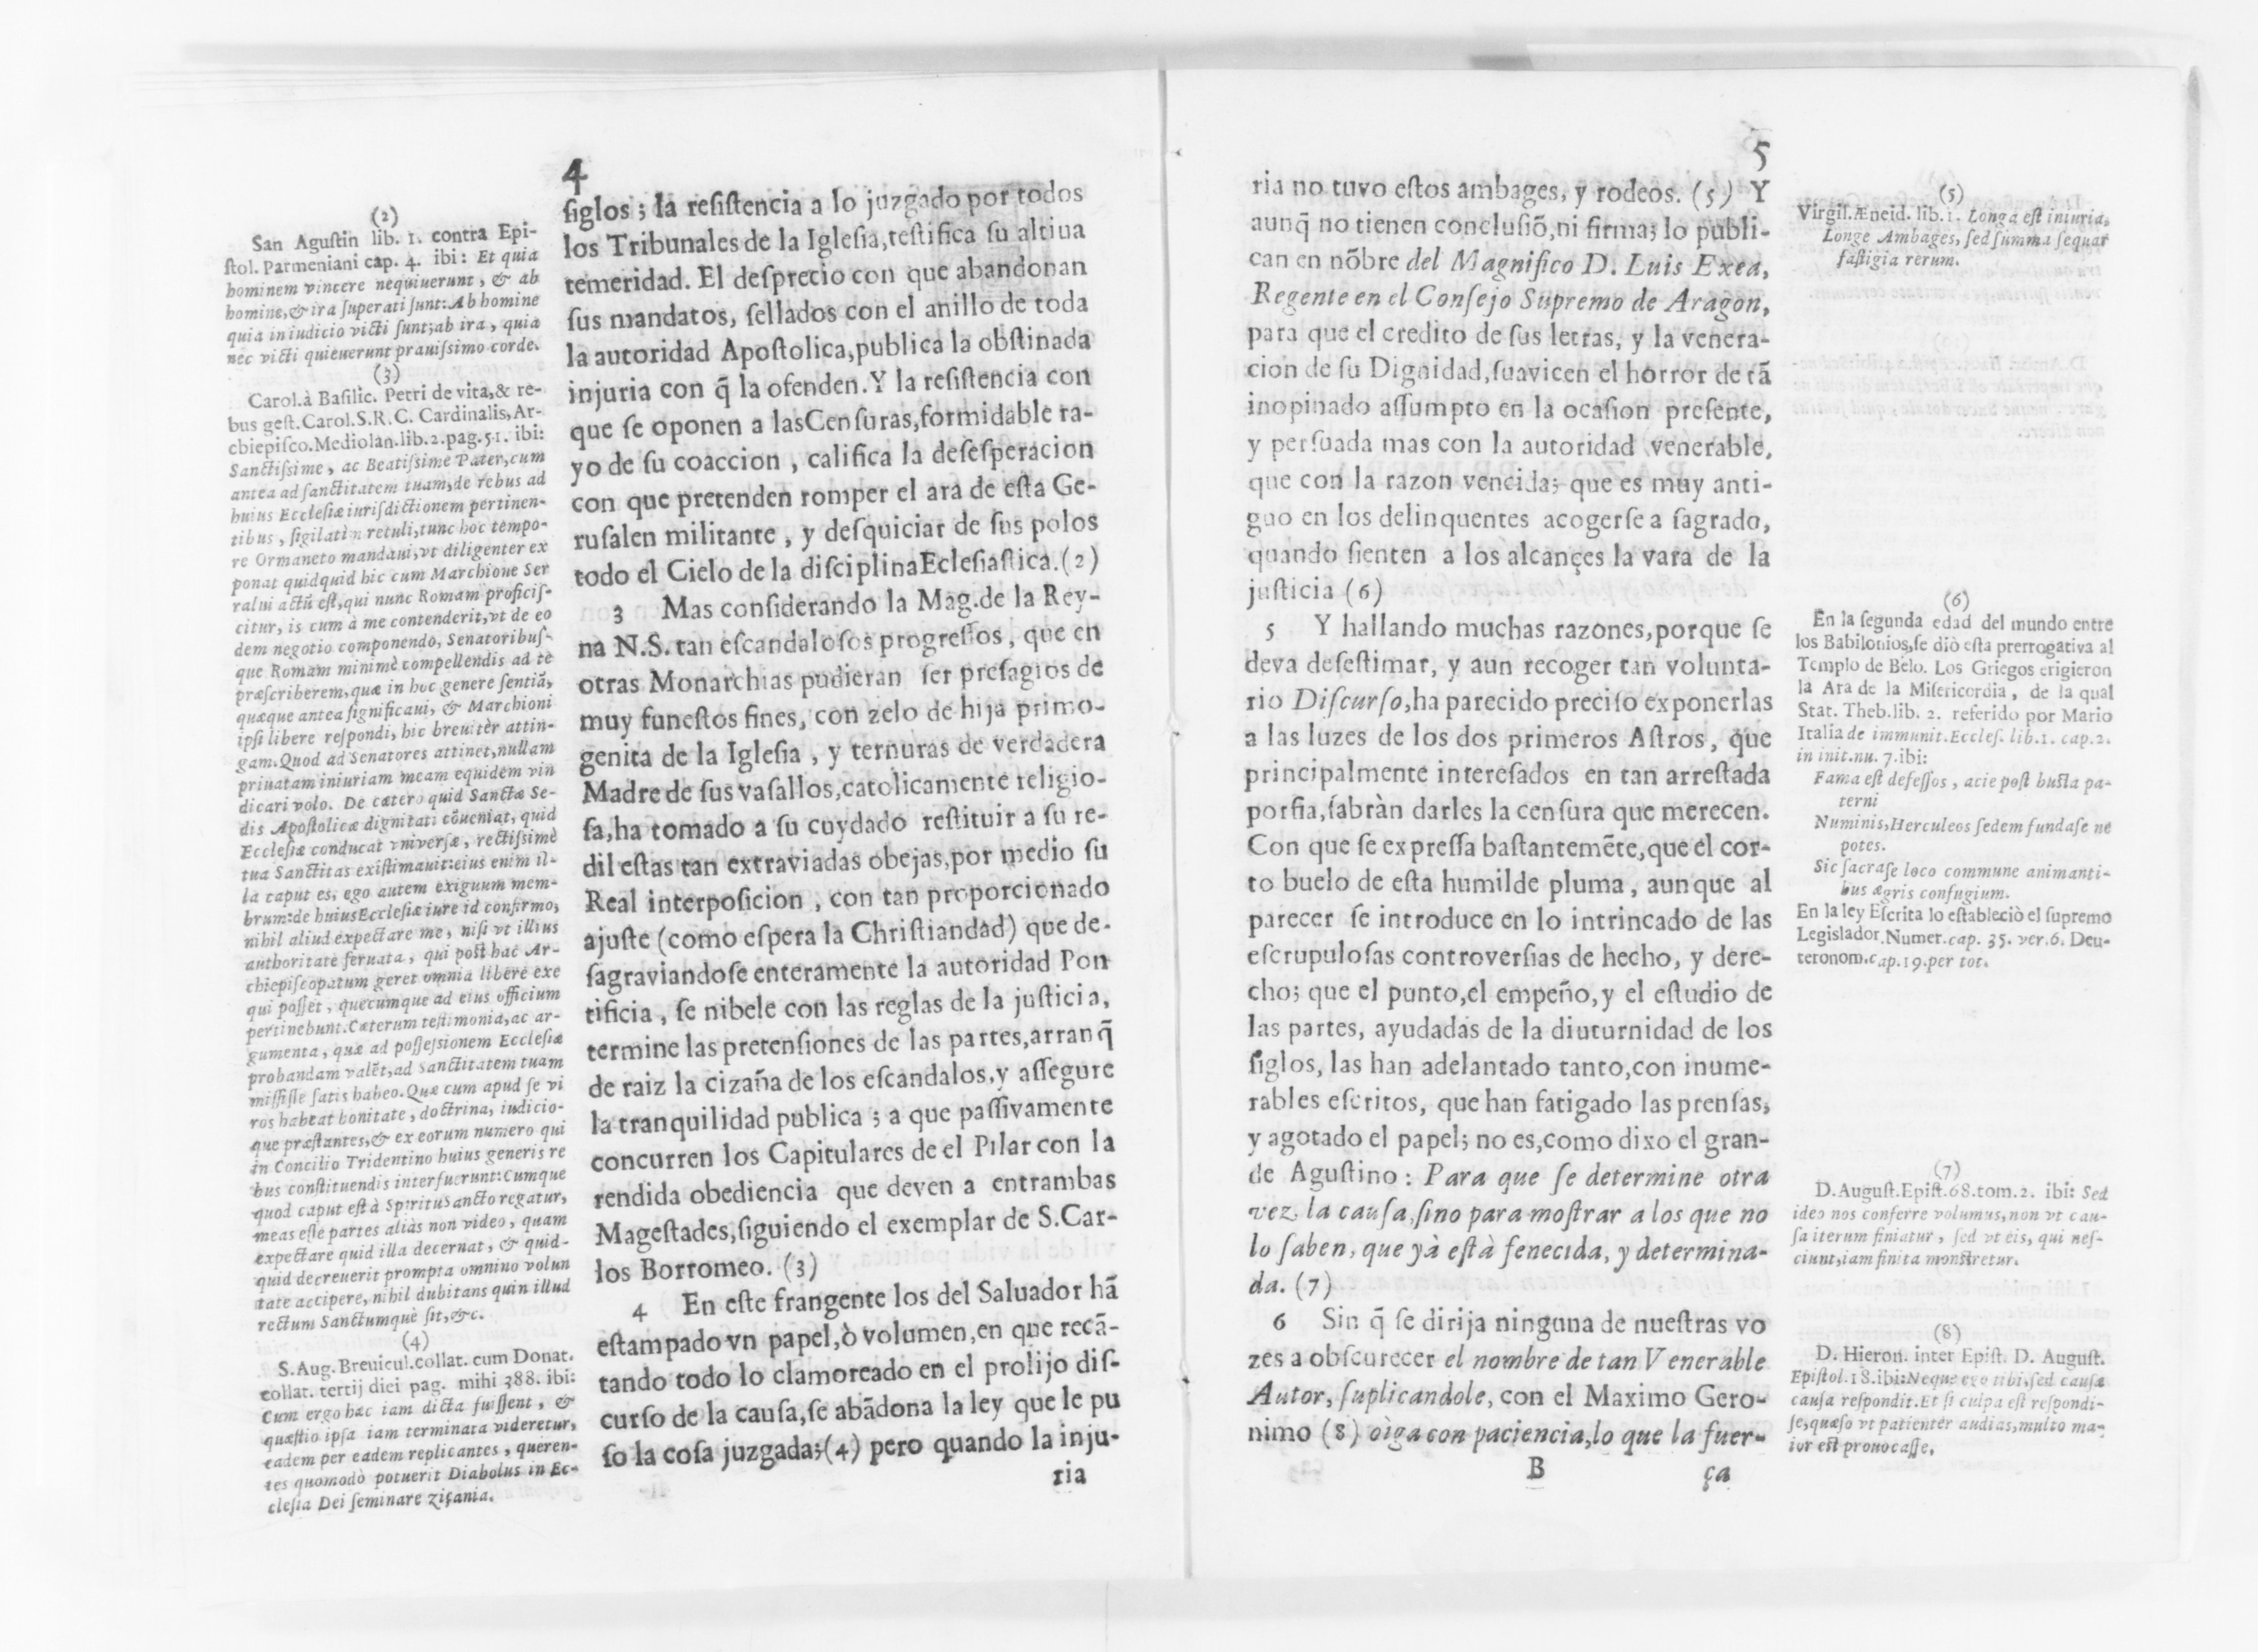 4
(2)
San Agustin lib. 1. contra Epi-
stol. Parmeniani cap. 4. ibi: Et quia
hominem vincere nequiuerunt, & ab
homine, & ira superati sunt: Ab homine
quia in iudicio victi sunt; ab ira, quia
nec victi quieuerunt prauissimo corde.
(3)
Carol. à Basilic. Petri de vita, & re-
bus gest. Carol. S.R.C. Cardinalis, Ar-
chiepisco. Mediolan. lib. 2. pag. 51. ibi:
Sanctissime, ac Beatissime Pater, cum
antea ad sanctitatem tuam, de rebus ad
huius Ecclesiæ iurisdictionem pertinen-
tibus, sigilatìm retuli, tunc hoc tempo-
re Ormaneto mandaui, vt diligenter ex
ponat quidquid hic cum Marchione Ser
ralui actũ est, qui nunc Romam proficis-
citur, is cum à me contenderit, vt de eo
dem negotio componendo, Senatoribus-
que Romam minimè compellendis ad te
præscriberem, quæ in hoc genere sentiã,
quæque antea significaui, & Marchioni
ipsi libere respondi, hic breuitèr attin-
gam. Quod ad Senatores attinet, nullam
priuatam iniuriam meam equidem vin
dicari volo. De cætero quid Sanctæ Se-
dis Apostolicæ dignitati cõueniat, quid
Ecclesiæ conducat vniversæ, rectissimè
tua Sanctitas existimauit: eius enim il-
la caput es, ego autem exiguum mem-
brum: de huius Ecclesiæ iure id confirmo,
nihil aliud expectare me, nisi vt illius
authoritate seruata, qui post hac Ar-
chiepiscopatum geret omnia liberè exe
qui posset, quecumque ad eius officium
pertinebunt. Cæterum testimonia, ac ar-
gumenta, quæ ad possessionem Ecclesiæ
probandam valẽt, ad Sanctitatem tuam
mississe satis habeo. Quæ cum apud se vi
ros habeat bonitate, doctrina, iudicio-
que præstantes, & ex eorum numero qui
in Concilio Tridentino huius generis re
bus constituendis interfuerunt: Cumque
quod caput est à Spiritu Sancto regatur,
meas esse partes aliàs non video, quam
expectare quid illa decernat, & quid-
quid decreuerit prompta omnino volun
tate accipere, nihil dubitans quin illud
rectum Sanctumquè sit, &c.
(4)
S. Aug. Breuicul. collat. cum Donat.
collat. tertij diei pag. mihi 388. ibi:
Cum ergo hæc iam dicta fuissent, &
quæstio ipsa iam terminata videretur,
eadem per eadem replicantes, queren-
tes quomodò potuerit Diabolus in Ec-
clesia Dei seminare ziçania.
siglos; la resistencia a lo juzgado por todos
los Tribunales de la Iglesia, testifica su altiua
temeridad. El desprecio con que abandonan
sus mandatos, sellados con el anillo de toda
la autoridad Apostolica, publica la obstinada
injuria con q̃ la ofenden. Y la resistencia con
que se oponen a las Censuras, formidable ra-
yo de su coaccion, califica la desesperacion
con que pretenden romper el ara de esta Ge-
rusalen militante, y desquiciar de sus polos
todo el Cielo de la disciplina Eclesiastica. (2)
3 Mas considerando la Mag. de la Rey-
na N.S. tan escandalosos progressos, que en
otras Monarchias pudieran ser presagios de
muy funestos fines, con zelo de hija primo-
genita de la Iglesia, y ternuras de verdadera
Madre de sus vasallos, catolicamente religio-
sa, ha tomado a su cuydado restituir a su re-
dil estas tan extraviadas obejas, por medio su
Real interposicion, con tan proporcionado
ajuste (como espera la Christiandad) que de-
sagraviandose enteramente la autoridad Pon
tificia, se nibele con las reglas de la justicia,
termine las pretensiones de las partes, arranq̃
de raiz la cizaña de los escandalos, y assegure
la tranquilidad publica; a que passivamente
concurren los Capitulares de el Pilar con la
rendida obediencia que deven a entrambas
Magestades, siguiendo el exemplar de S. Car-
los Borromeo. (3)
4 En este frangente los del Saluador hã
estampado vn papel, ò volumen, en que recã-
tando todo lo clamoreado en el prolijo dis-
curso de la causa, se abãdona la ley que le pu
so la cosa juzgada; (4) pero quando la inju-
ria
5
ria no tuvo estos ambages, y rodeos. (5) Y
aunq̃ no tienen conclusiõ, ni firma; lo publi-
can en nõbre del Magnifico D. Luis Exea,
Regente en el Consejo Supremo de Aragon,
para que el credito de sus letras, y la venera-
cion de su Dignidad, suavicen el horror de tã
inopinado assumpto en la ocasion presente,
y persuada mas con la autoridad venerable,
que con la razon vencida; que es muy anti-
guo en los delinquentes acogerse a sagrado,
quando sienten a los alcançes la vara de la
justicia (6)
5 Y hallando muchas razones, porque se
deva desestimar, y aun recoger tan volunta-
rio Discurso, ha parecido preciso exponerlas
a las luzes de los dos primeros Astros, que
principalmente interesados en tan arrestada
porfia, sabràn darles la censura que merecen.
Con que se expressa bastantemẽte, que el cor-
to buelo de esta humilde pluma, aunque al
parecer se introduce en lo intrincado de las
escrupulosas controversias de hecho, y dere-
cho; que el punto, el empeño, y el estudio de
las partes, ayudadas de la diuturnidad de los
siglos, las han adelantado tanto, con inume-
rables escritos, que han fatigado las prensas,
y agotado el papel; no es, como dixo el gran-
de Agustino: Para que se determine otra
vez la causa, sino para mostrar a los que no
lo saben, que yà està fenecida, y determina-
da. (7)
6 Sin q̃ se dirija ninguna de nuestras vo
zes a obscurecer el nombre de tan Venerable
Autor, suplicandole, con el Maximo Gero-
nimo (8) òiga con paciencia, lo que la fuer-
B ça
(5)
Virgil. Æneid. lib. 1. Longa est iniuria,
Longe Ambages, sed summa sequar
fastigia rerum.
(6)
En la segunda edad del mundo entre
los Babilonios, se diò esta prerrogativa al
Templo de Belo. Los Griegos erigieron
la Ara de la Misericordia, de la qual
Stat. Theb. lib. 2. referido por Mario
Italia de immunit. Eccles. lib. 1. cap. 2.
in init. nu. 7. ibi:
Fama est defessos, acie post busta pa-
terni
Numinis, Herculeos sedem fundase ne
potes.
Sic sacrase loco commune animanti-
bus ægris confugium.
En la ley Escrita lo estableciò el supremo
Legislador. Numer. cap. 35. ver. 6. Deu-
teronom. cap. 19. per tot.
(7)
D. August. Epist. 68. tom. 2. ibi: Sed
ideo nos conferre volumus, non vt cau-
sa iterum finiatur, sed vt eis, qui nes-
ciunt, iam finita monstretur.
(8)
D. Hieron. inter Epist. D. August.
Epistol. 18. ibi: Neque ego tibi, sed causæ
causa respondit. Et si culpa est respondi-
se, quæso vt patientèr audias, multo ma-
ior est prouocasse.